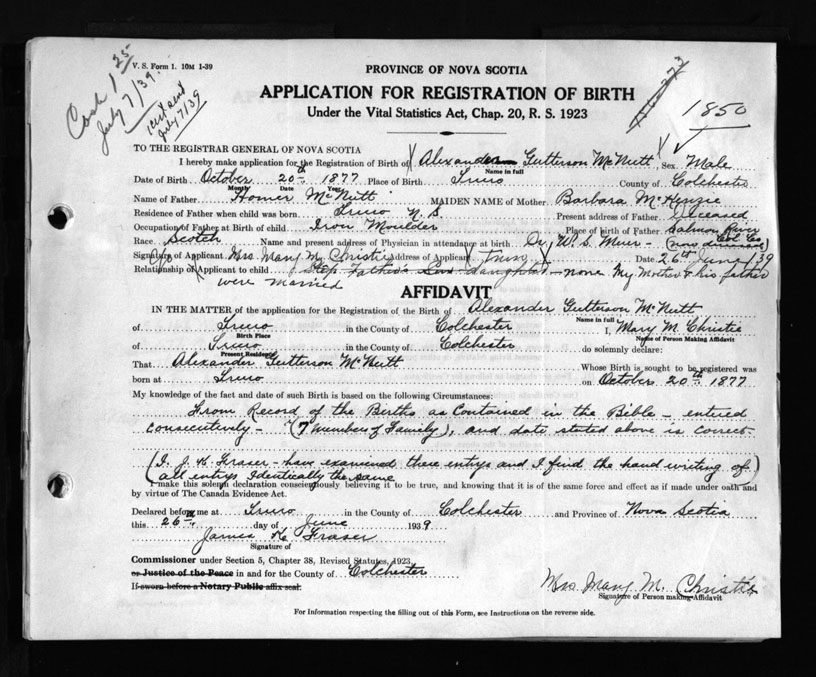 V. S. Form 1. 10M 1-39
Cash 1 25
July 7/39.
July 7/39
1850
PROVINCE OF NOVA SCOTIA
APPLICATION FOR REGISTRATION OF BIRTH
Under the Vital Statistics Act, Chap. 20, R. S. 1923
TO THE REGISTRAR GENERAL OF NOVA SCOTIA
I hereby make application for the Registration of Birth of Alexander Gutterson McNutt, Sex Male
Name in full
Date of Birth October 20th 1877 Place of Birth Truro County of Colchester
Month Date Year
Name of Father Homer McNutt MAIDEN NAME of Mother Barbara McKenzie
Residence of Father when child was born Truro N. S. Present address of Father Deceased
Occupation of Father at Birth of child Iron Moulder Place of Birth of father Salmon River Col. Co.
Race Scotch Name and present address of Physician in attendance at birth Dr. W. S. Muir - (now deceased)
Signature of Applicant Mrs Mary M. Christie Address of Applicant Truro Date 26th June/39
Relationship of Applicant to child Step Father's daughter - none My Mother & his father
were married
AFFIDAVIT
IN THE MATTER of the application for the Registration of the Birth of Alexander Gutterson McNutt
Name in full
of Truro in the County of Colchester I, Mary M. Christie
Birth Place Name of Person Making Affidavit
of Truro in the County of Colchester do solemnly declare:
Present Residence
That Alexander Gutterson McNutt Whose Birth is sought to be registered was
born at Truro on October 20th 1877
My knowledge of the fact and date of such Birth is based on the following Circumstances:
From Record of the Births as contained in the Bible - entered
consecutively - (7 members of Family), and date stated above is correct.
(I. J. K. Fraser - have examined these entrys and I find the hand writing of
all entrys Identically the same)
I make this solemn declaration conscientiously believing it to be true, and knowing that it is of the same force and effect as if made under oath and
by virtue of The Canada Evidence Act.
Declared before me at Truro in the County of Colchester and Province of Nova Scotia
this 26th day of June 1939
James K. Fraser
Signature of
Commissioner under Section 5, Chapter 38, Revised Statutes, 1923
or Justice of the Peace in and for the County of Colchester
If sworn before a Notary Public affix seal.
Mrs Mary M. Christie
Signature of Person making Affidavit
For Information respecting the filling out of this Form, see Instructions on the reverse side.